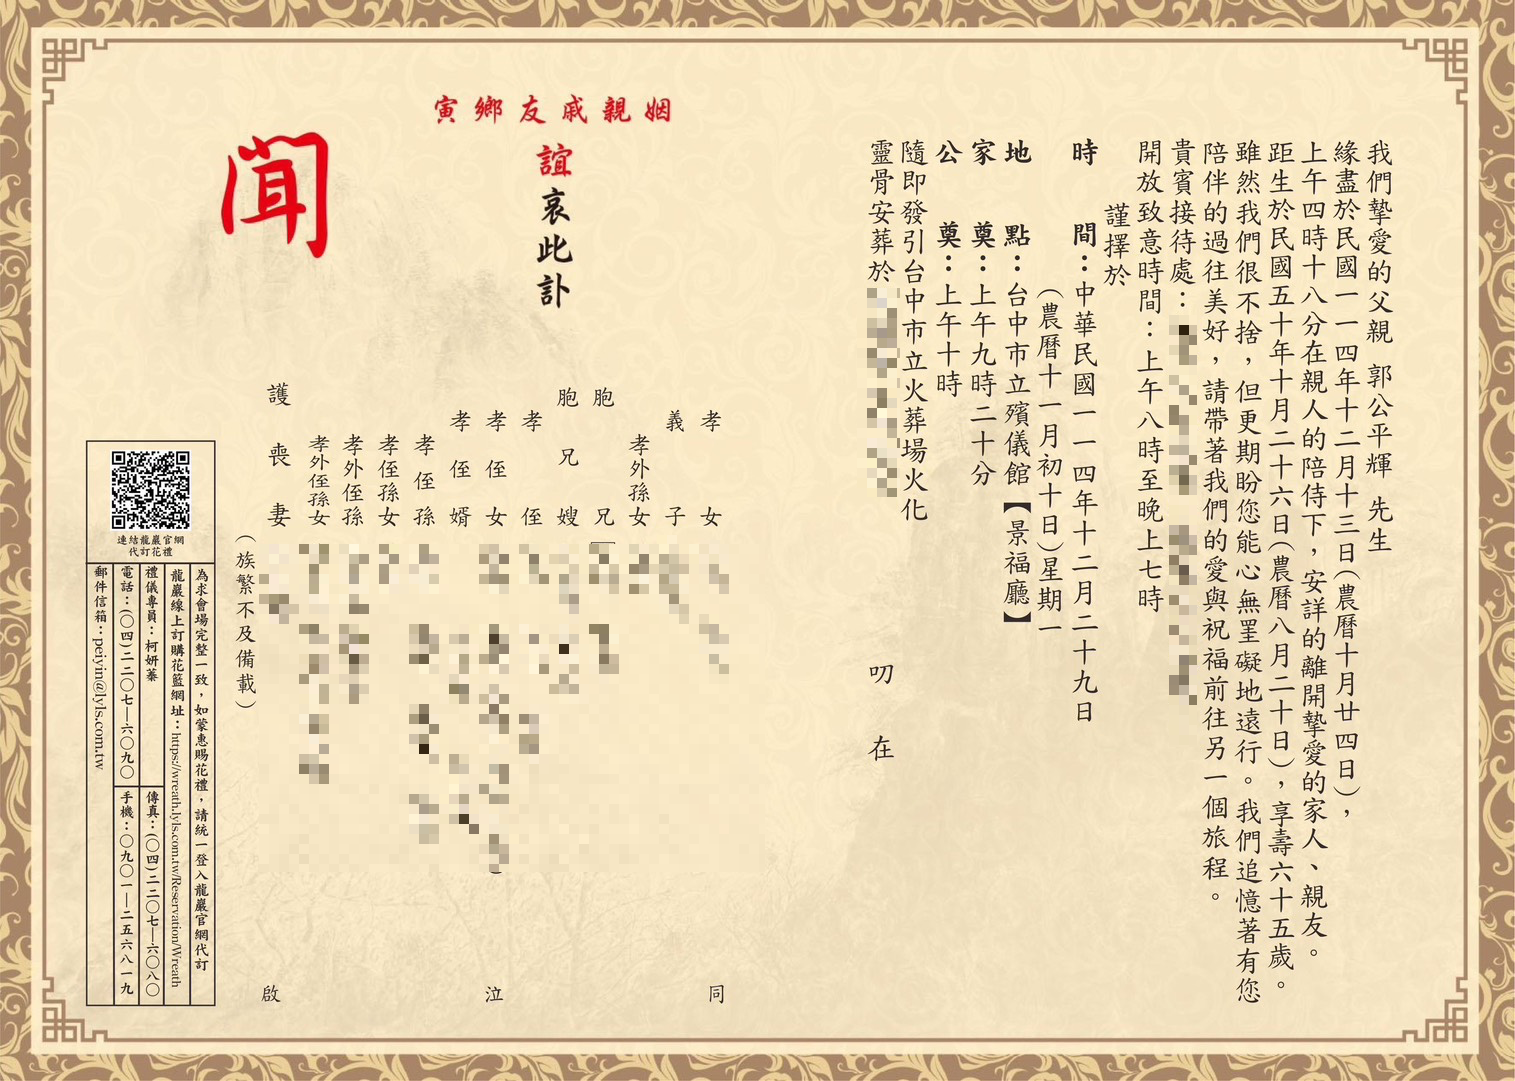 我們摯愛的父親 郭公平輝 先生
緣盡於民國一一四年十二月十三日(農曆十月廿四日)，
上午四時十八分在親人的陪侍下，安詳的離開摯愛的家人、親友。
距生於民國五十年十月二十六日(農曆八月二十日)，享壽六十五歲。
雖然我們很不捨，但更期盼您能心無罣礙地遠行。我們追憶著有您
陪伴的過往美好，請帶著我們的愛與祝福前往另一個旅程。
貴賓接待處：
開放致意時間：上午八時至晚上七時
謹擇於
時間：中華民國一一四年十二月二十九日
(農曆十一月初十日)星期一
地點：台中市立殯儀館【景福廳】
家奠：上午九時二十分
公奠：上午十時
隨即發引台中市立火葬場火化
靈骨安葬於
叨在
姻親戚友鄉寅
誼哀此訃
聞
孝女
義子
孝外孫女
胞兄
胞兄嫂
孝侄
孝侄女
孝侄婿
孝侄孫
孝侄孫女
孝外侄孫
孝外侄孫女
護喪妻
(族繁不及備載)
同泣啟
連結龍巖官網
代訂花禮
為求會場完整一致，如蒙惠賜花禮，請統一登入龍巖官網代訂
龍巖線上訂購花籃網址：https://wreath.lyls.com.tw/Reservation/Wreath
禮儀專員：柯妍蓁
傳真：(〇四)二二〇七—六〇八〇
電話：(〇四)二二〇七—六〇九〇
手機：〇九〇一—二五六八一九
郵件信箱：peiyin@lyls.com.tw